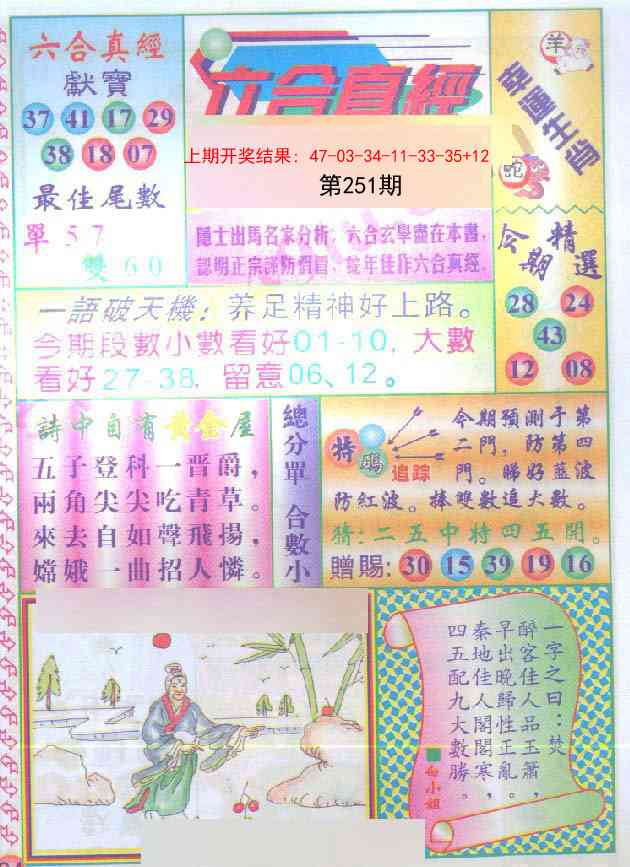 六合真經
獻寶
37 41 17 29
38 18 07
最佳尾數
單 5 7
雙 6 0
六合真經
上期开奖结果：47-03-34-11-33-35+12
第251期
隱士出馬名家分析，六合玄學盡在本書，
認明正宗謹防假冒，蛇年佳作六合真經。
羊
幸運生肖
蛇
今期精選
28 24
43
12 08
一語破天機：养足精神好上路。
今期段數小數看好01-10，大數
看好27-38，留意06、12。
詩中自有黃金屋
五子登科一晋爵，
兩角尖尖吃青草。
來去自如聲飛揚，
嫦娥一曲招人憐。
總分單 合數小
特碼
追踪
今期預測于第
二門，防第四
門。睇好蓝波
防紅波。棒雙數追大數。
猜：二五中特四五開。
贈賜：30 15 39 19 16
一字之曰：焚
醉客佳人品玉簫，
早出晚歸性正亂，
秦地佳人閣閣寒，
四五配九大數勝。
白小姐